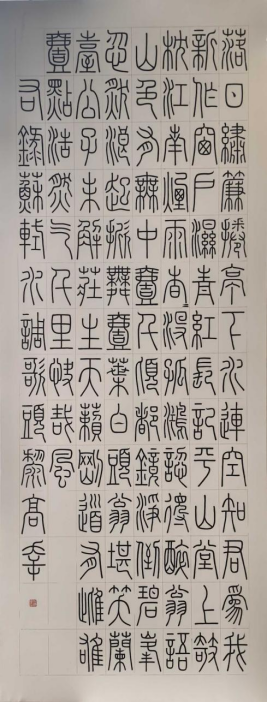 落日繡簾捲亭下水連空知君為我
新作窗戶濕青紅長記平山堂上攲
枕江南煙雨杳〻沒孤鴻認得醉翁語
山色有無中壹千頃都鏡淨倒碧峯
忽然浪起掀舞壹葉白頭翁堪笑蘭
臺公子未解莊生天籟剛道有雌雄
壹點浩然气千里快哉風
右錄蘇軾水調歌頭黎高